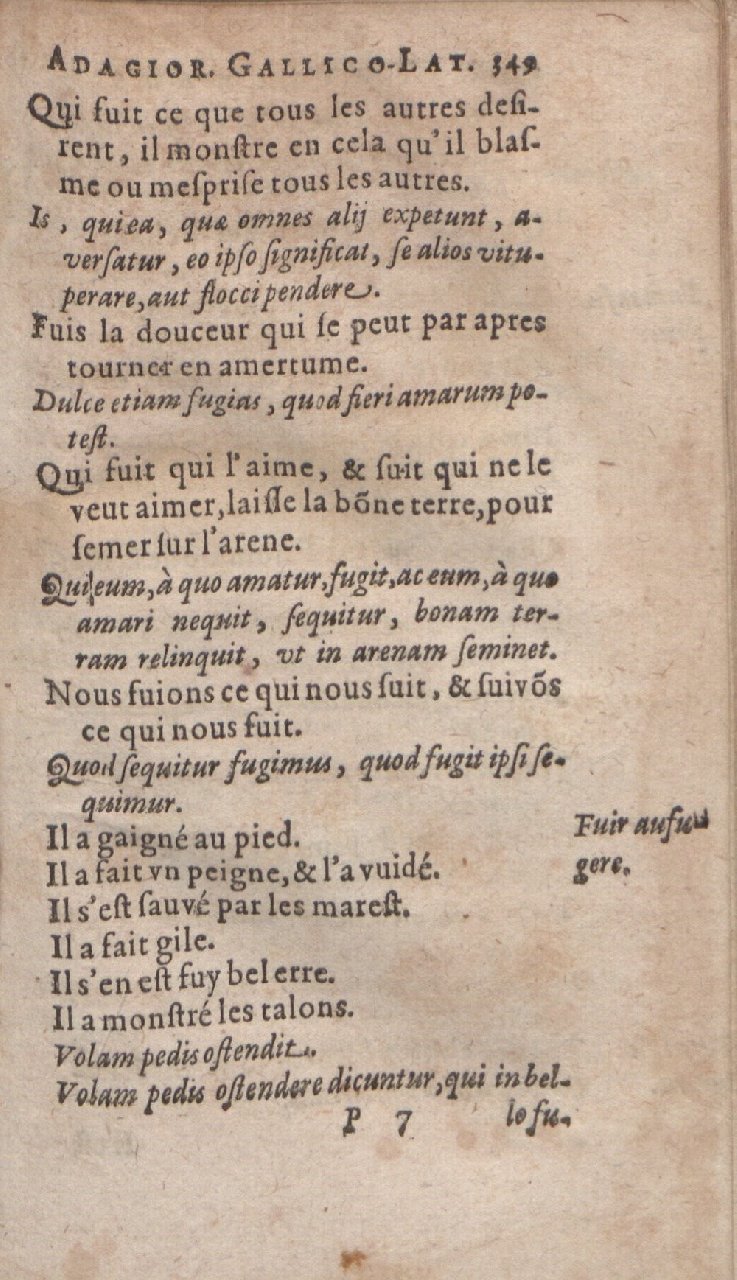 ADAGIOR. GALLICO-LAT. 349
Qui fuit ce que tous les autres deſi-
rent, il monſtre en cela qu'il blaſ-
me ou meſpriſe tous les autres.
Is, qui ea, quæ omnes alij expetunt, a-
verſatur, eo ipſo ſignificat, ſe alios vitu-
perare, aut flocci pendere.
Fuis la douceur qui ſe peut par apres
tourner en amertume.
Dulce etiam fugias, quod fieri amarum po-
teſt.
Qui fuit qui l'aime, & ſuit qui ne le
veut aimer, laiſſe la bõne terre, pour
ſemer ſur l'arene.
Qui eum, à quo amatur, fugit, ac eum, à quo
amari nequit, ſequitur, bonam ter-
ram relinquit, vt in arenam ſeminet.
Nous fuions ce qui nous ſuit, & ſuivõs
ce qui nous fuit.
Quod ſequitur fugimus, quod fugit ipſi ſe-
quimur.
Il a gaigné au pied.
Fuir aufu-
Il a fait vn peigne, & l'a vuidé.
gere.
Il s'eſt ſauvé par les mareſt.
Il a fait gile.
Il s'en eſt fuy bel erre.
Il a monſtré les talons.
Volam pedis oſtendit.
Volam pedis oſtendere dicuntur, qui in bel-
P 7 lo fu-